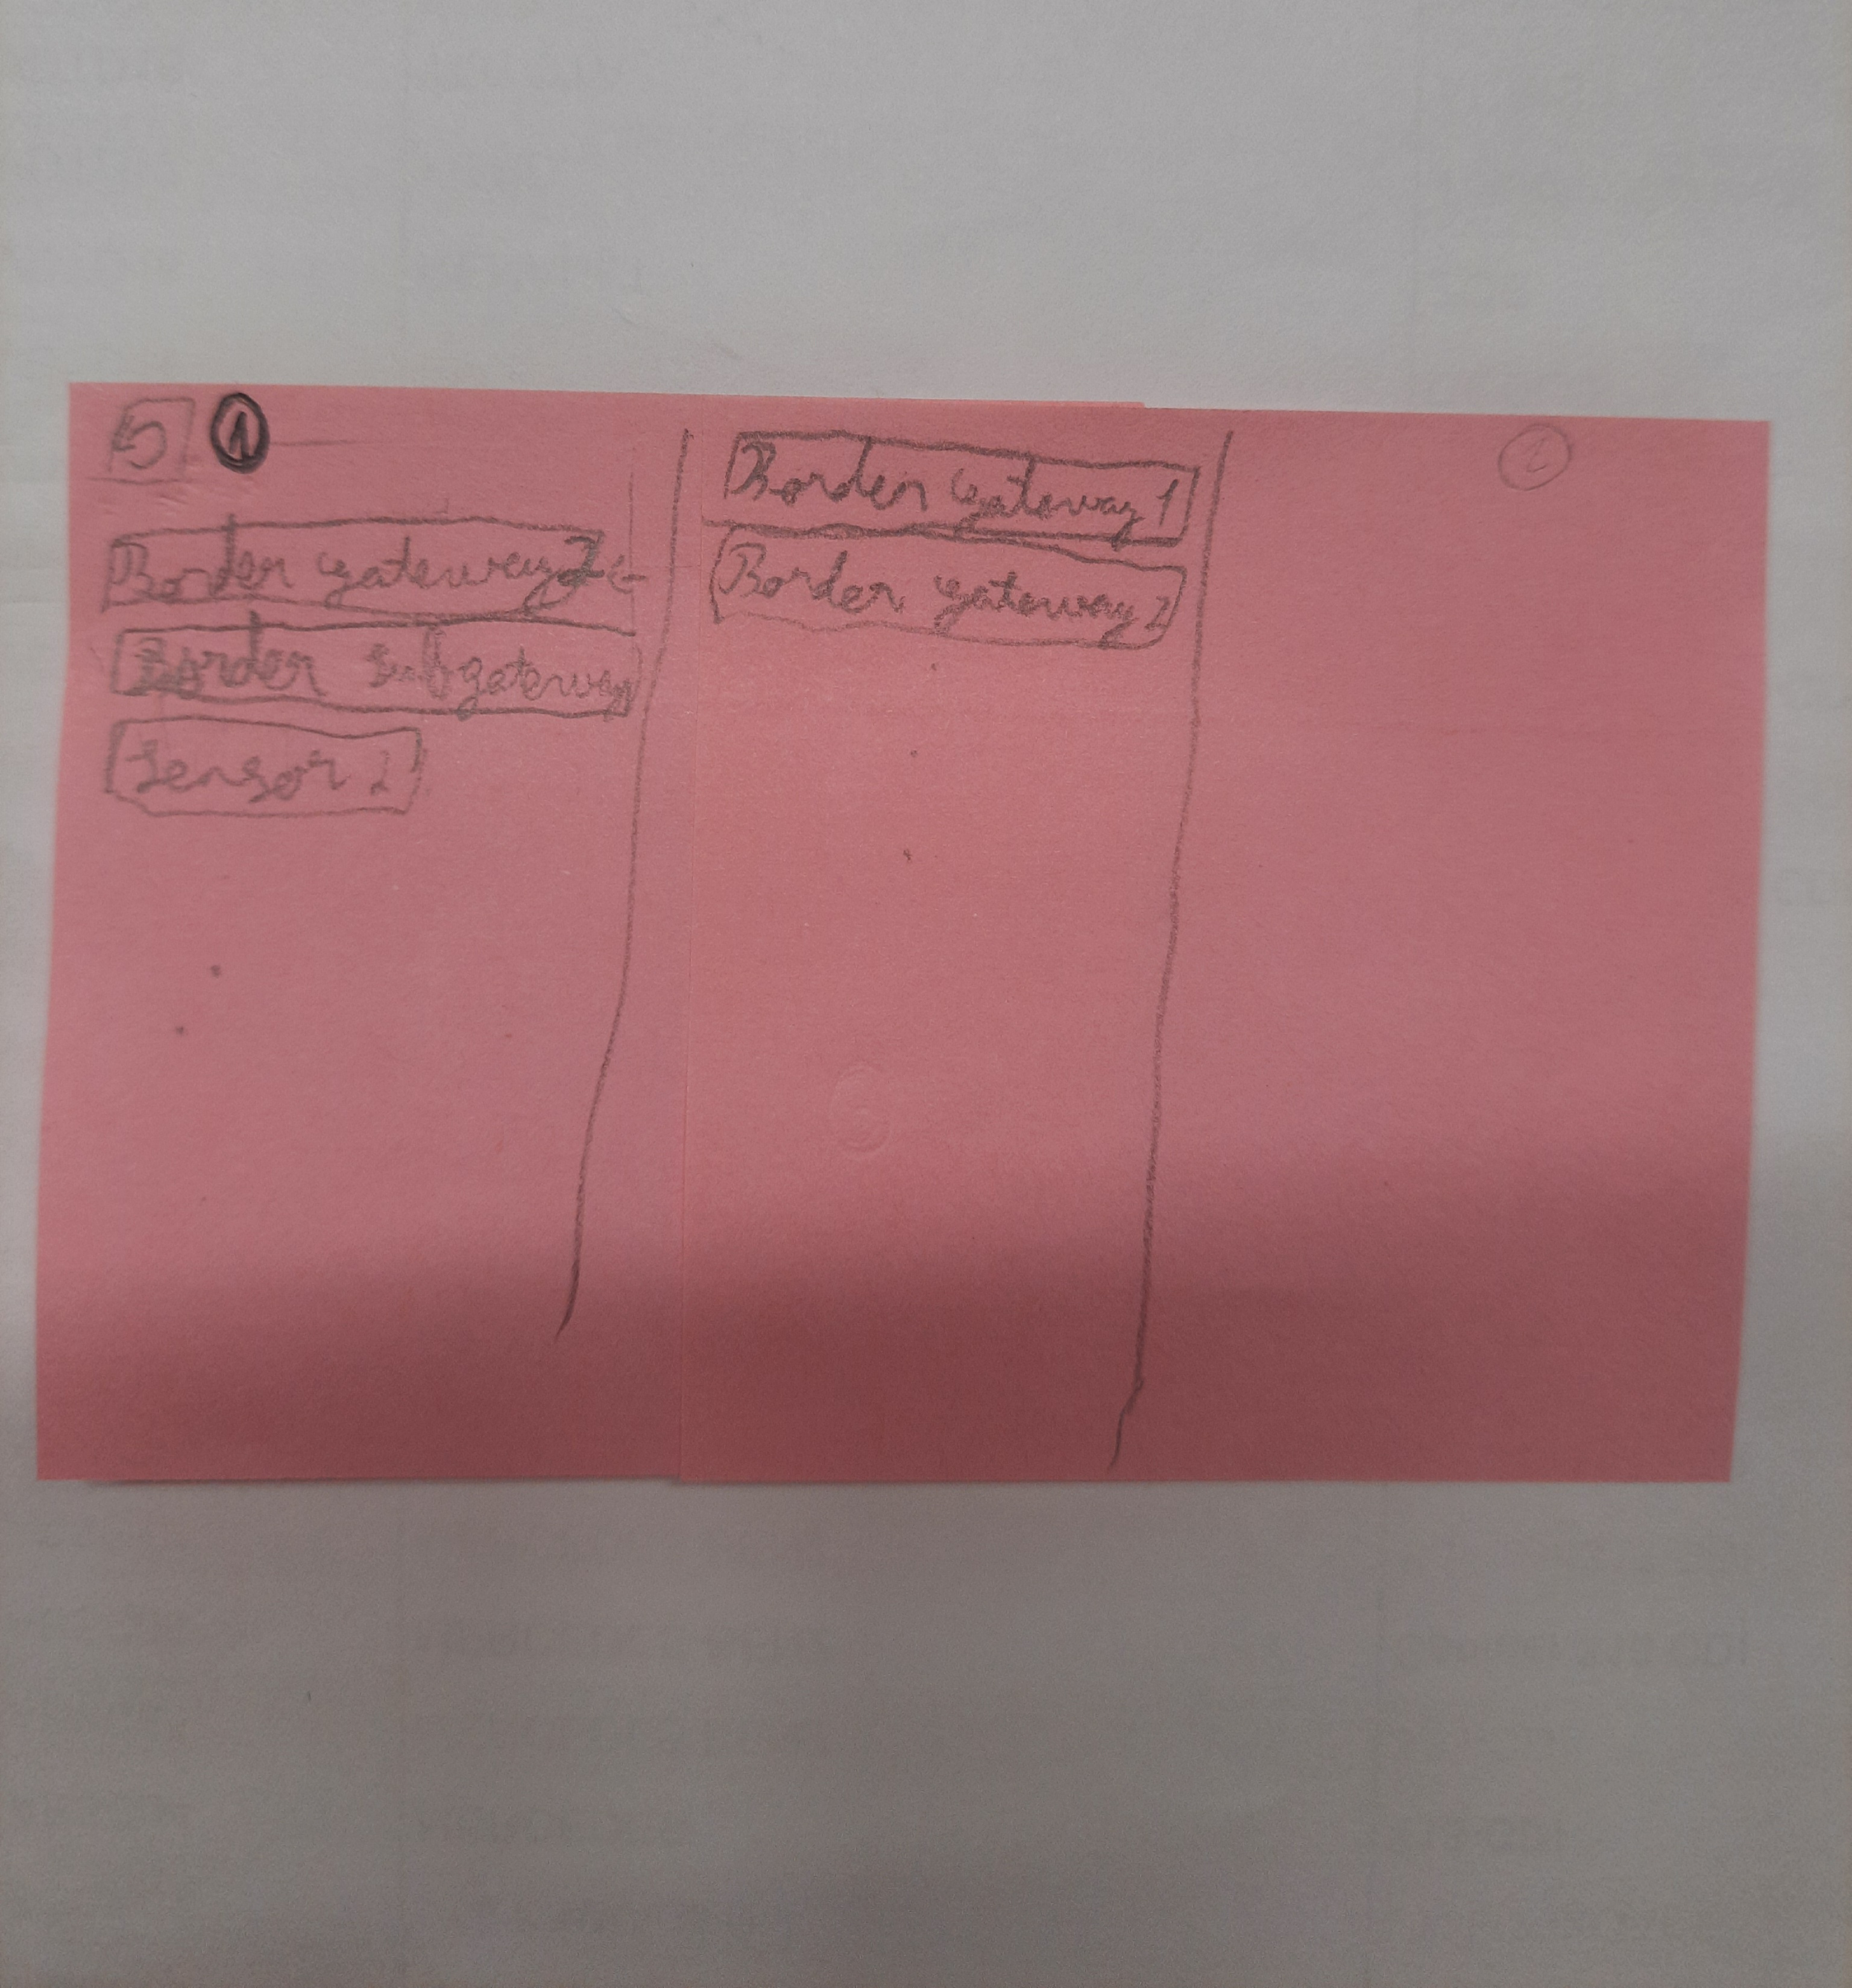 5 1
Border gateway 2
Border Subgateway
Sensor 2
Border Gateway 1
Border gateway 2
2